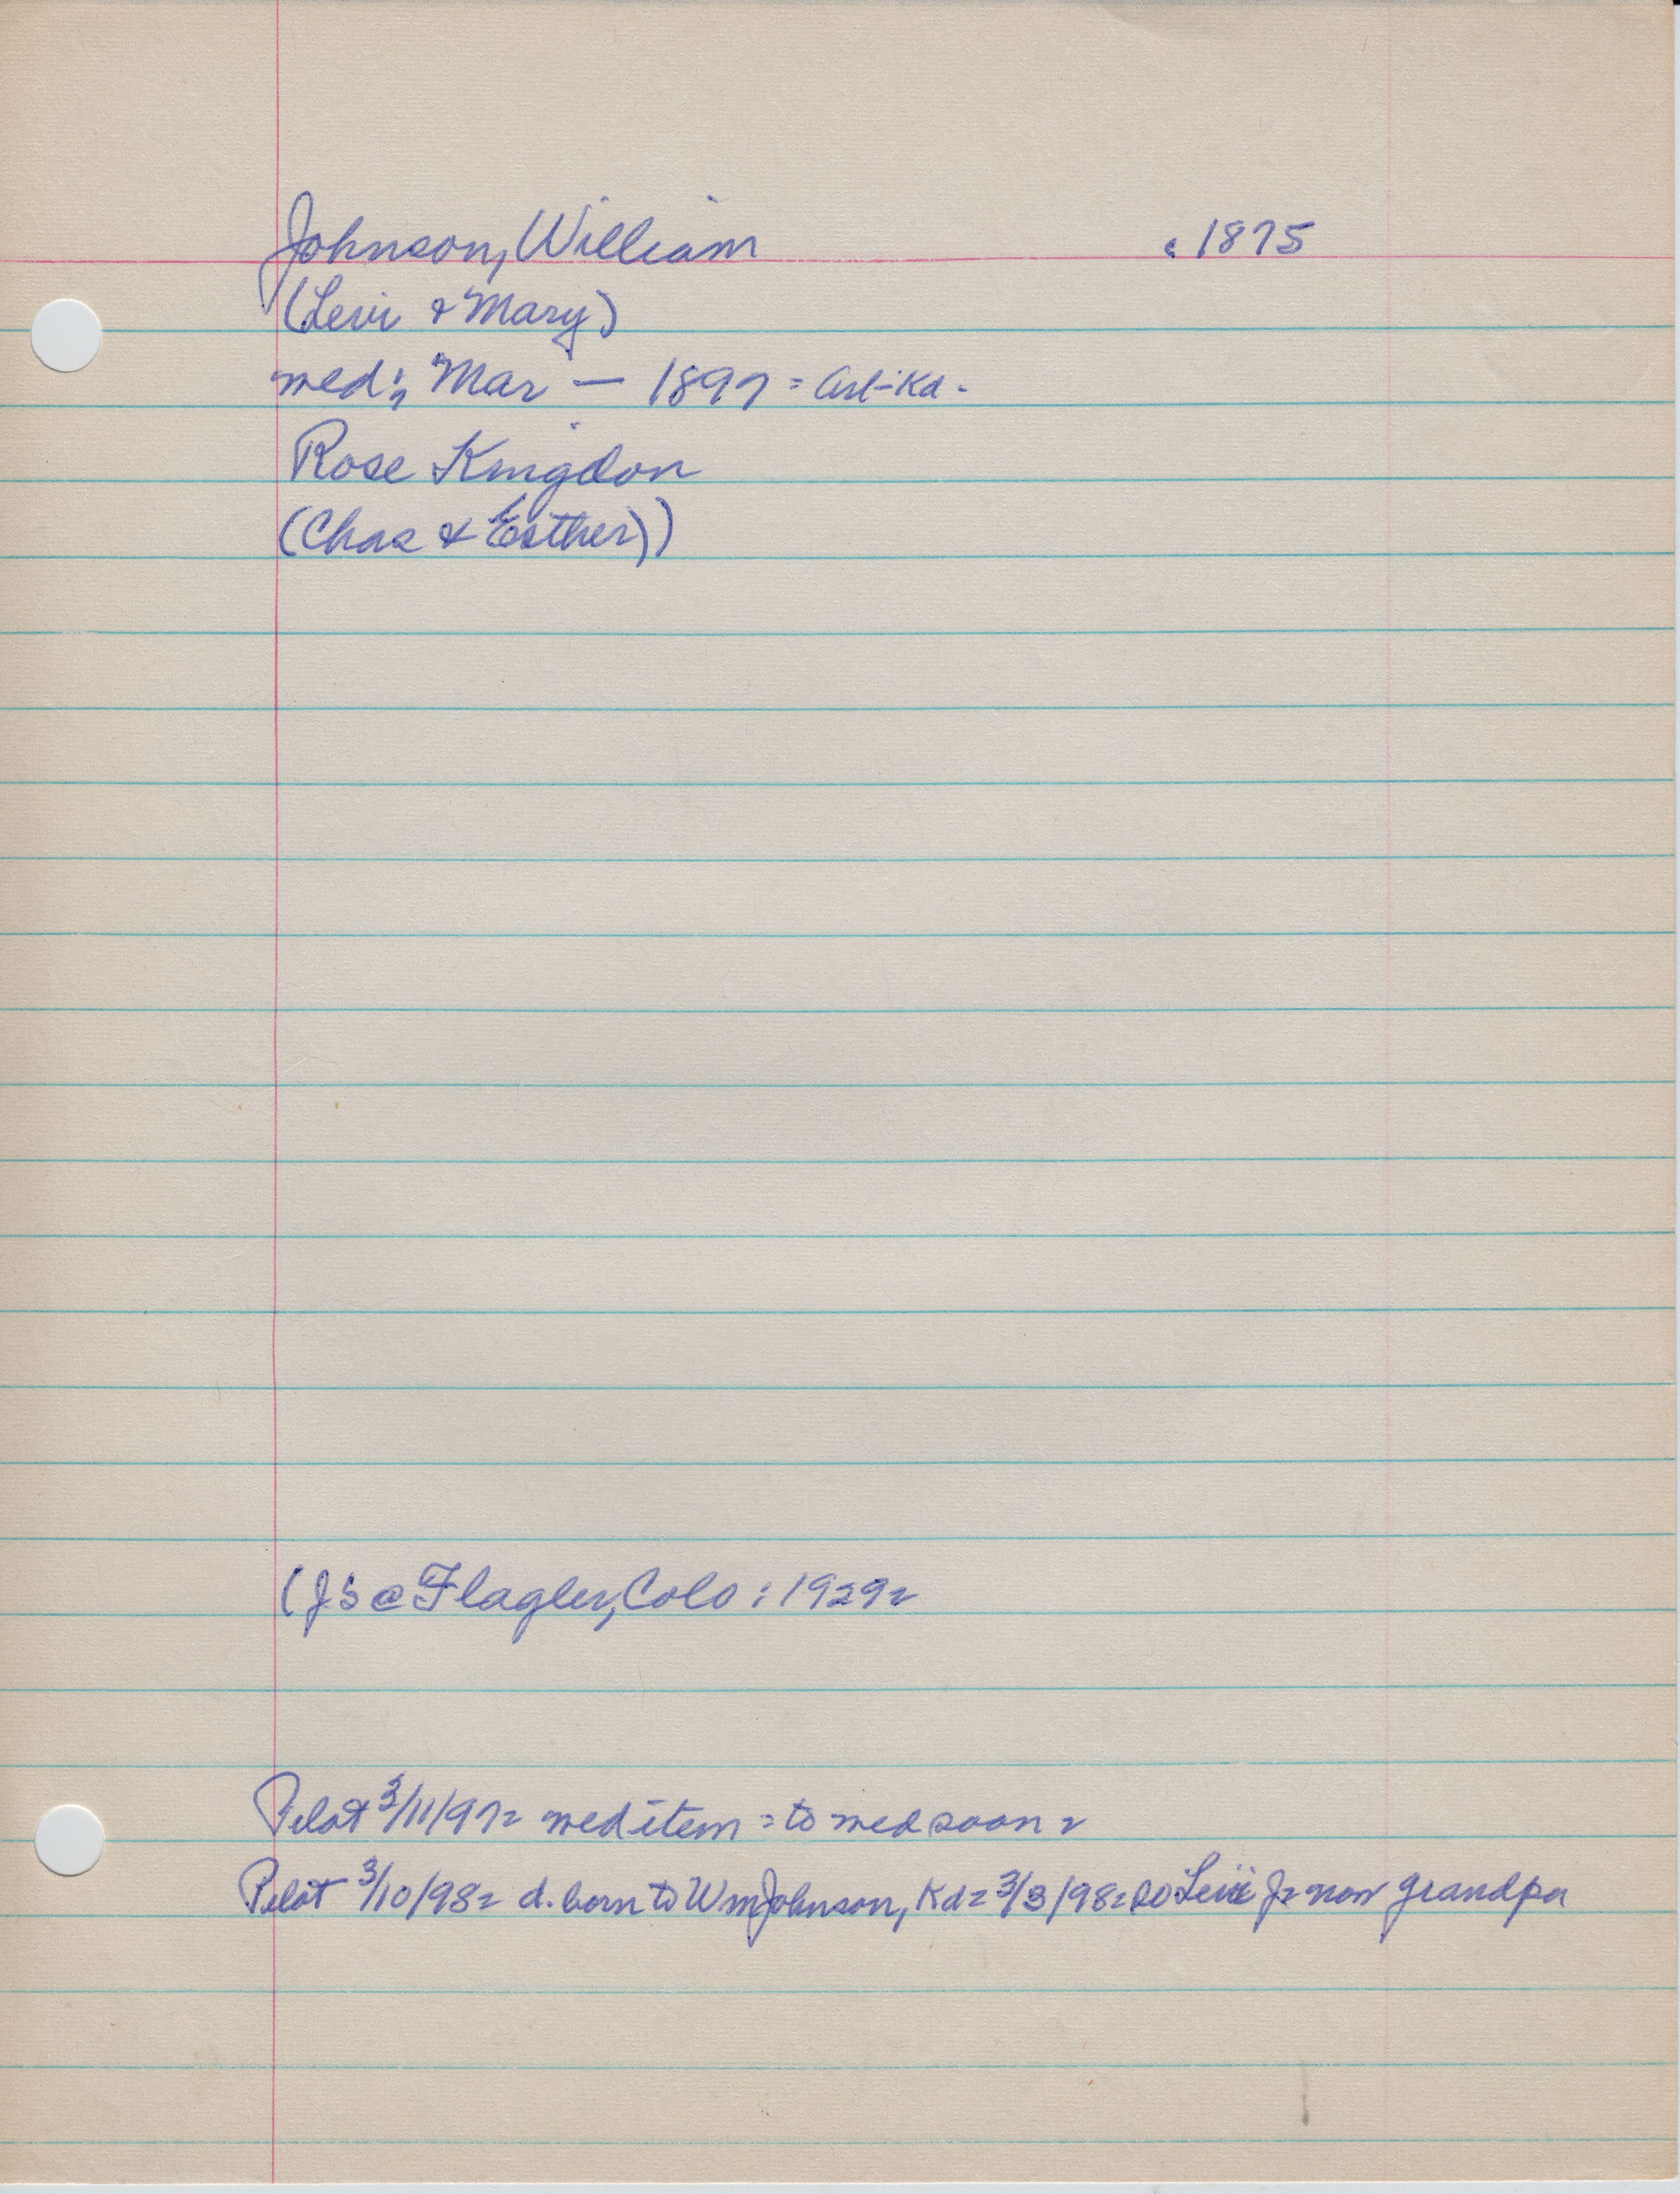 Johnson, William c 1875
(Levi & Mary)
med; Mar — 1897 = Art-Kd -
Rose Kingdon
(Chas & Esther))
(J's @ Flagler, Colo : 1929=
Pilot 3/11/97= med item = to med soon =
Pilot 3/10/98= d. born to Wm Johnson, Kd= 3/3/98= so Levi J= now grandpa